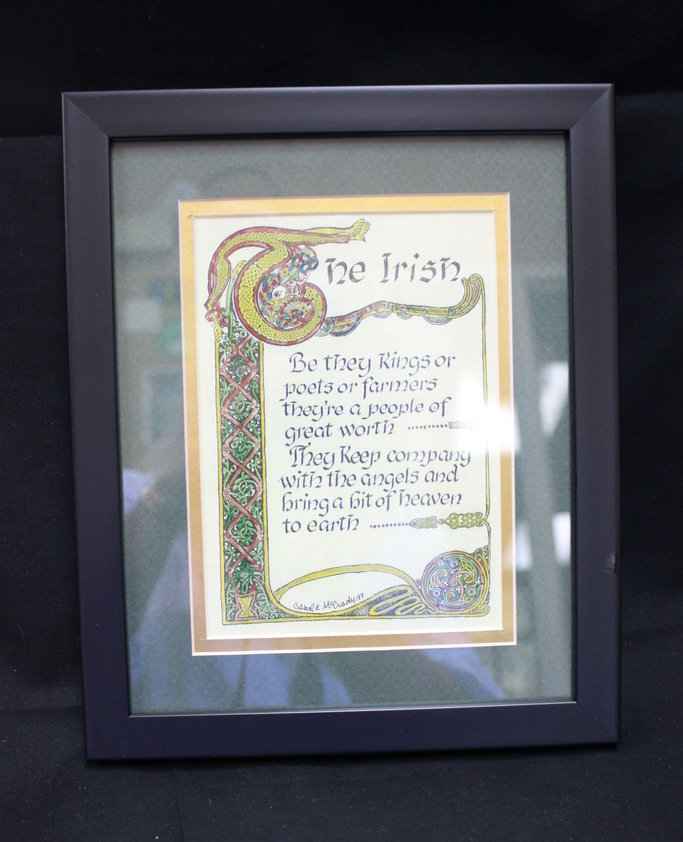 The Irish
Be they Kings or
poets or farmers
they're a people of
great worth
They Keep company
with the angels and
bring a bit of heaven
to earth
Carol E McGrady